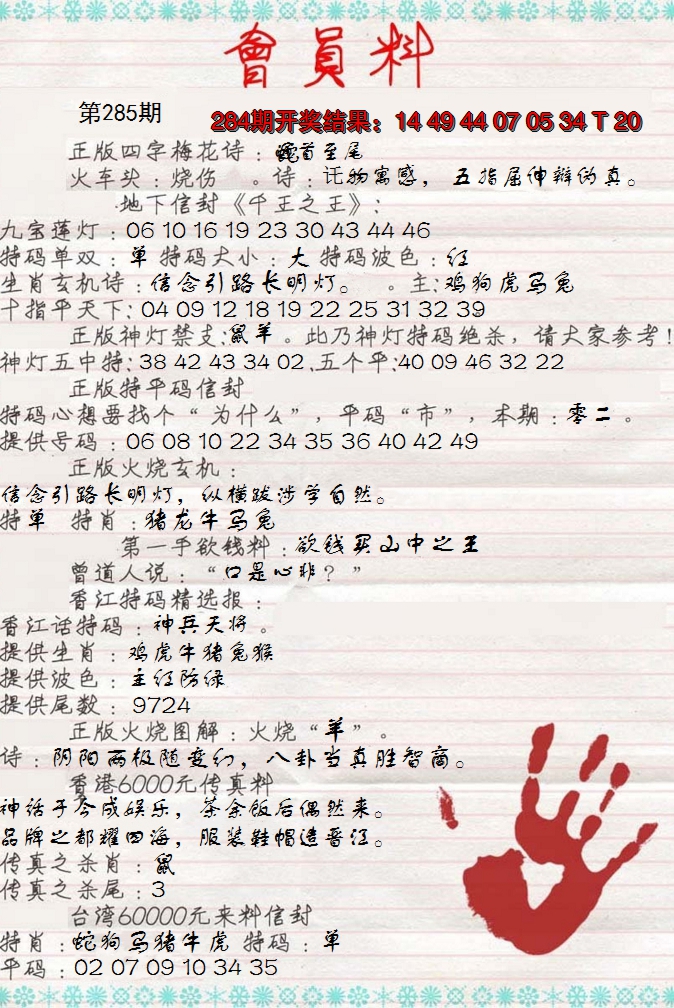 會員料
第285期
284期开奖结果：14 49 44 07 05 34 T 20
正版四字梅花诗：蛇首至尾
火车头：烧伤 。诗：讬物寓感，五指屈伸辩伪真。
地下信封《千王之王》：
九宝莲灯：06 10 16 19 23 30 43 44 46
特码单双：单 特码大小：大 特码波色：红
生肖玄机诗：信念引路长明灯。 。主：鸡狗虎马兔
十指平天下：04 09 12 18 19 22 25 31 32 39
正版神灯禁支：鼠羊。此乃神灯特码绝杀，请大家参考！
神灯五中特：38 42 43 34 02.五个平：40 09 46 32 22
正版特平码信封
特码心想要找个“为什么”，平码“市”，本期：零二。
提供号码：06 08 10 22 34 35 36 40 42 49
正版火烧玄机：
信念引路长明灯，纵横跋涉学自然。
特单 特肖：猪龙牛马兔
第一手欲钱料：欲钱买山中之王
曾道人说：“口是心非？”
香江特码精选报：
香江话特码：神兵天将。
提供生肖：鸡虎牛猪兔猴
提供波色：主红防绿
提供尾数：9724
正版火烧图解：火烧“羊”。
诗：阴阳两极随变幻，八卦当真胜智商。
香港6000元传真料
神话于今成娱乐，茶余饭后偶然来。
品牌之都耀四海，服装鞋帽造晋江。
传真之杀肖：鼠
传真之杀尾：3
台湾60000元来料信封
特肖：蛇狗马猪牛虎 特码：单
平码：02 07 09 10 34 35